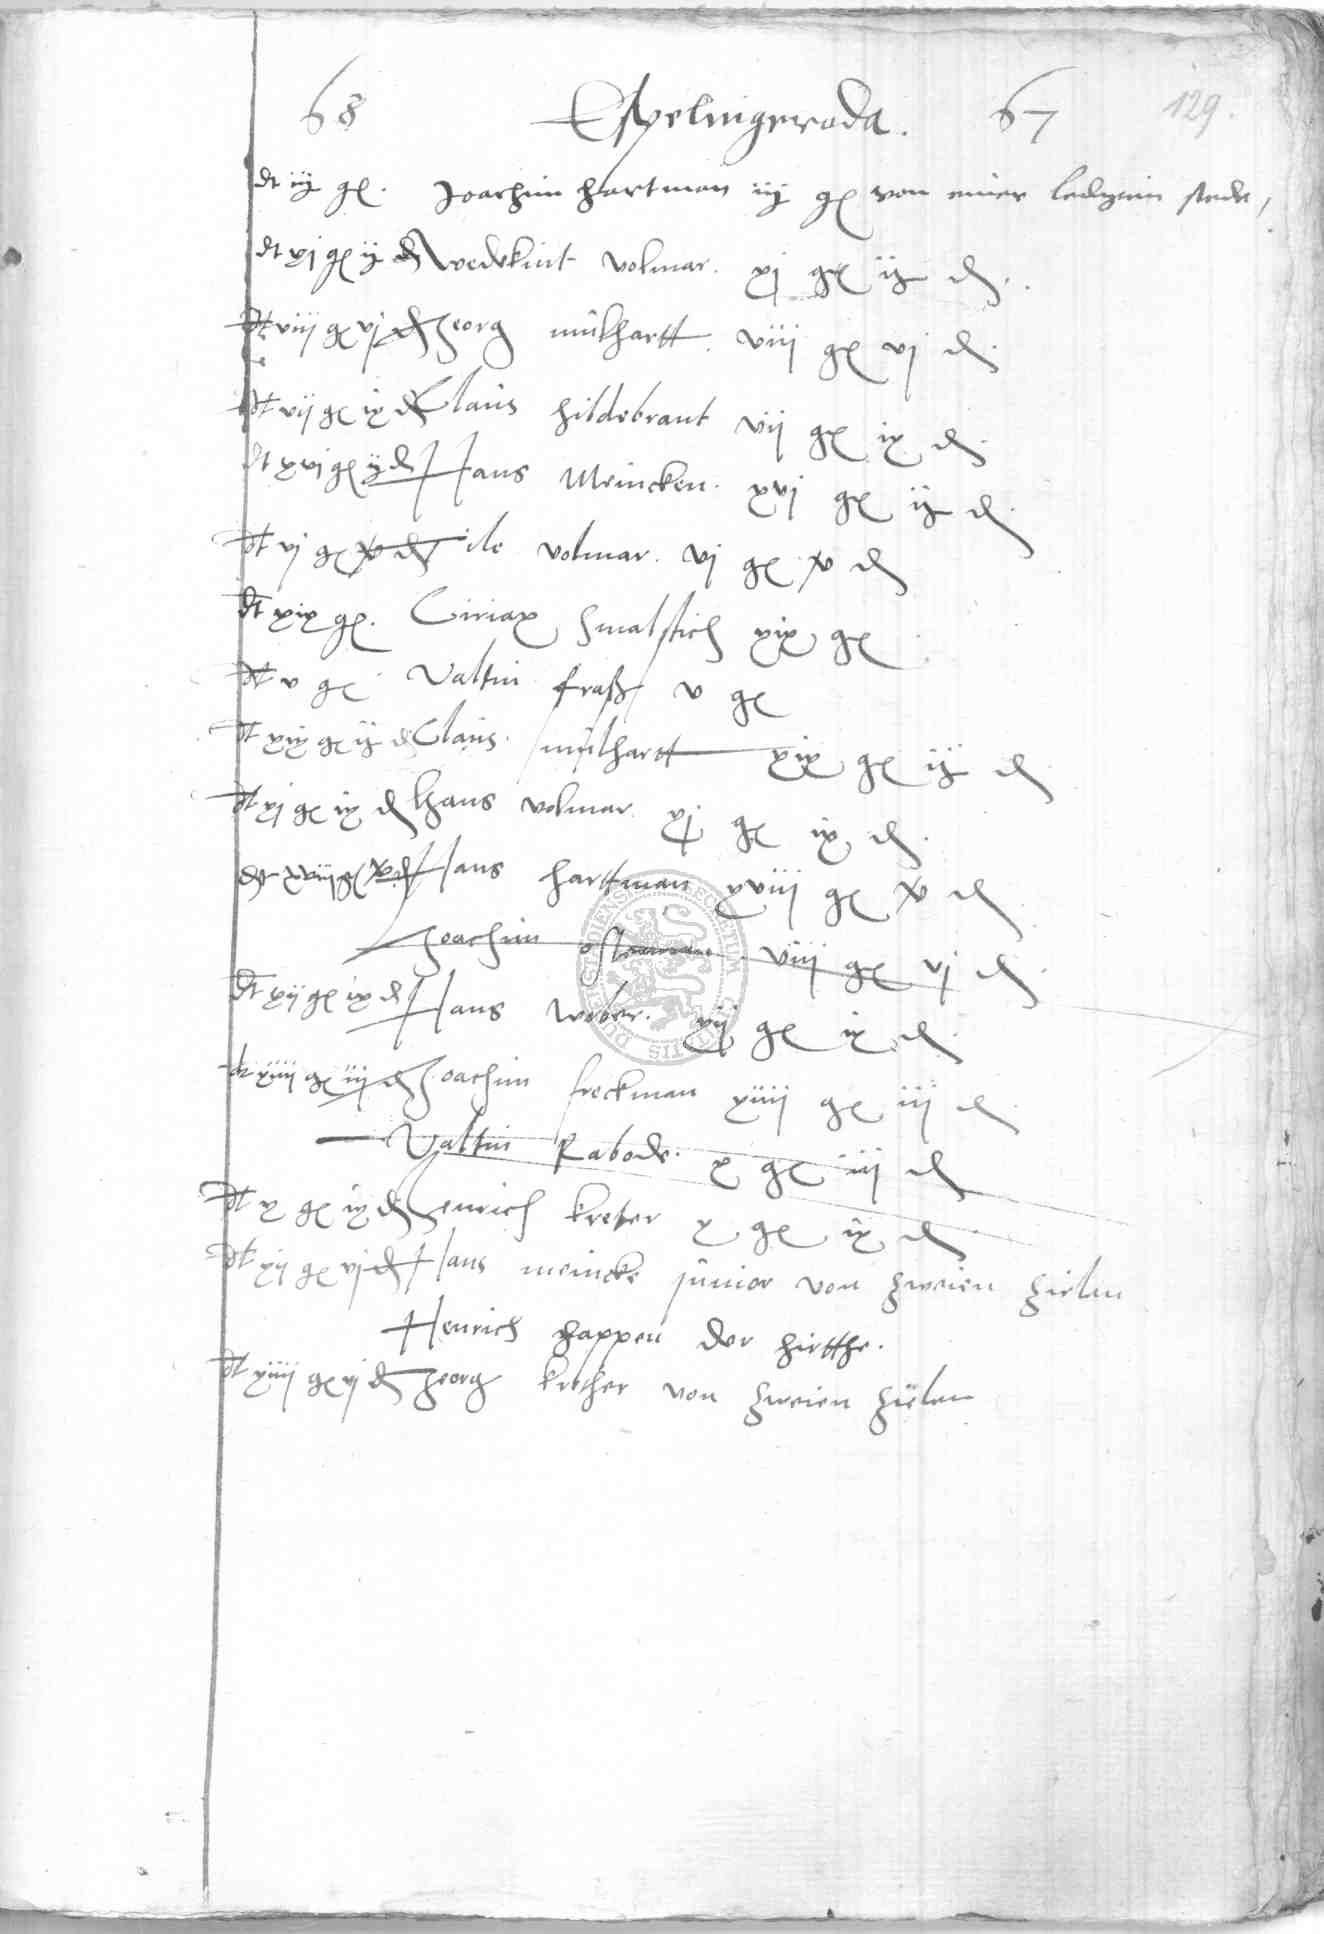 68 Espelingeroda. 67 129.
dt iij gl. Joachim Hartman iij gl von einer ledigenn stede,
dt xj gl ij d Wedekint volmar. xj gl ij d.
dt viij gl vj d Georg mulhartt. viij gl vj d.
dt vij gl ix d Claus hildebrant vij gl ix d.
dt xvj gl ij d Hans Meincken. xvj gl ij d.
dt vj gl x d Tile volmar. vj gl x d
dt xix gl. Ciriax smalstich xix gl
dt v gl Valtin fraß v gl
dt xix gl ij d Claus. mulhart xix gl ij d
dt xj gl ix d Hans volmar xj gl ix d.
dt xviij gl x d Hans harttman xviij gl x d
Joachim viij gl vj d
dt xij gl ix d Hans weber. xij gl ix d.
dt xiiij gl iij d Joachim freckman xiiij gl iij d
Valtin Rabode. x gl iij d
dt x gl ix d Henrich kreter x gl ix d
dt xij gl vj d Hans meincke junior von zweien zielen
Henrich happen der hirtthe.
dt xiiij gl vj d Georg krether von zweien zielen
DUDERSTADIENSIS SECRETUM CIVITATIS